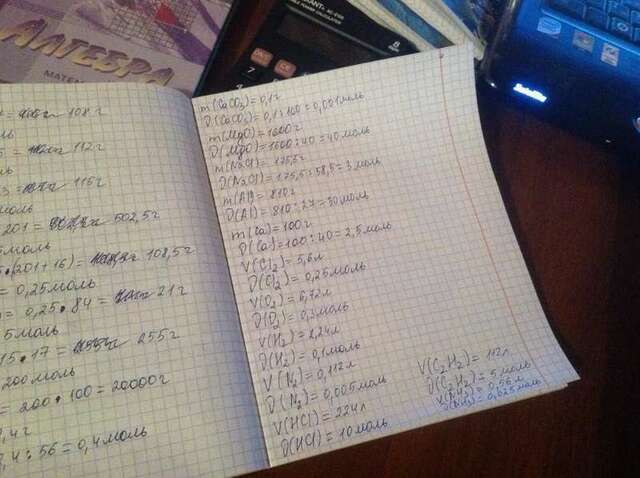 АЛГЕБРА
МАТЕМ
8
7
Satellite
108 г
112 г
116 г
201 502,5 г
моль
(201+16) = 108,5 г
= 0,25 моль
= 0,25 • 84 = 21 г
5 моль
15 • 17 = 255 г
200 моль
= 200 • 100 = 20000 г
,4 г
,4 : 56 = 0,4 моль
m(CaCO3) = 0,1 г
ν(CaCO3) = 0,1 : 100 = 0,001 моль
m(MgO) = 1600 г
ν(MgO) = 1600 : 40 = 40 моль
m(NaCl) = 175,5 г
ν(NaCl) = 175,5 : 58,5 = 3 моль
m(Al) = 810 г
ν(Al) = 810 : 27 = 30 моль
m(Ca) = 100 г
ν(Ca) = 100 : 40 = 2,5 моль
V(Cl2) = 5,6 л
ν(Cl2) = 0,25 моль
V(O2) = 6,72 л
ν(O2) = 0,3 моль
V(H2) = 2,24 л
ν(H2) = 0,1 моль
V(N2) = 0,112 л
ν(N2) = 0,005 моль
V(HCl) = 224 л
ν(HCl) = 10 моль
V(C2H2) = 112 л
ν(C2H2) = 5 моль
V(NH3) = 0,56 л
ν(NH3) = 0,025 моль